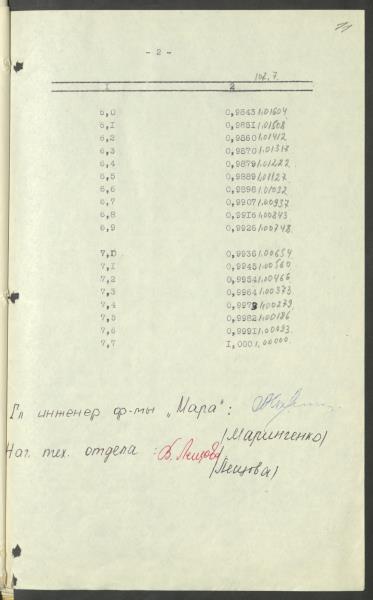 - 2 -
1 2
6,0 0,9843 1.01604
6,I 0,985I 1.01508
6,2 0,9860 1.01412
6,3 0,9870 1.01317
6,4 0,9879 1.01222
6,5 0,9889 1.01127
6,6 0,9898 1.01032
6,7 0,9907 1.00937
6,8 0,99I6 1.00843
6,9 0,9926 1.00748
7,0 0,9936 1.00654
7,I 0,9945 1.00560
7,2 0,9954 1.00466
7,3 0,9964 1.00373
7,4 0,9973 1.00279
7,5 0,9982 1.00186
7,6 0,999I 1.00093
7,7 I,000 1.00000
Гл инженер ф-мы „Мара":
/Маринченко/
Нач. тех. отдела :
/Лещова/